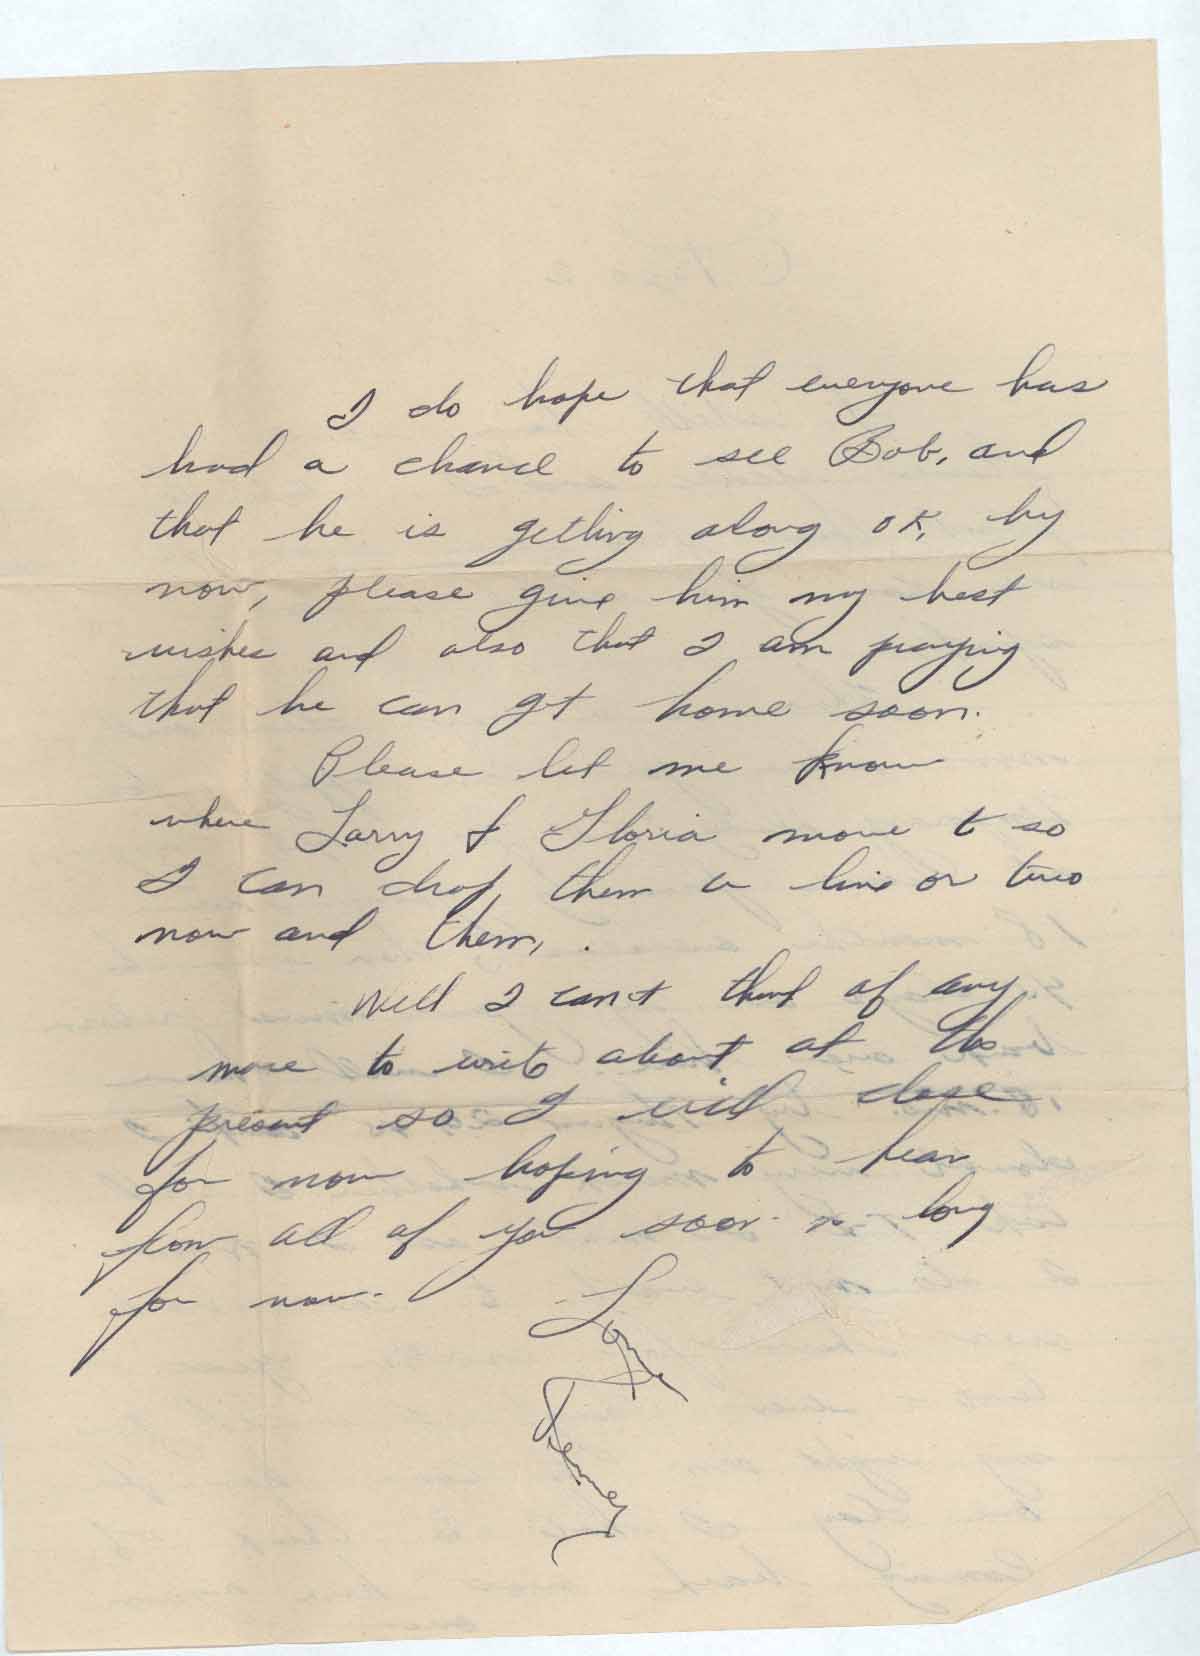 I do hope that everyone has
had a chance to see Bob, and
that he is getting along OK, by
now, please give him my best
wishes and also that I am praying
that he can get home soon.
Please let me know
where Larry & Gloria move to so
I can drop them a line or two
now and them,.
Well I can't think of any
more to write about at the
present so I will close
for now hoping to hear
from all of you soon. so long
for now.
Love